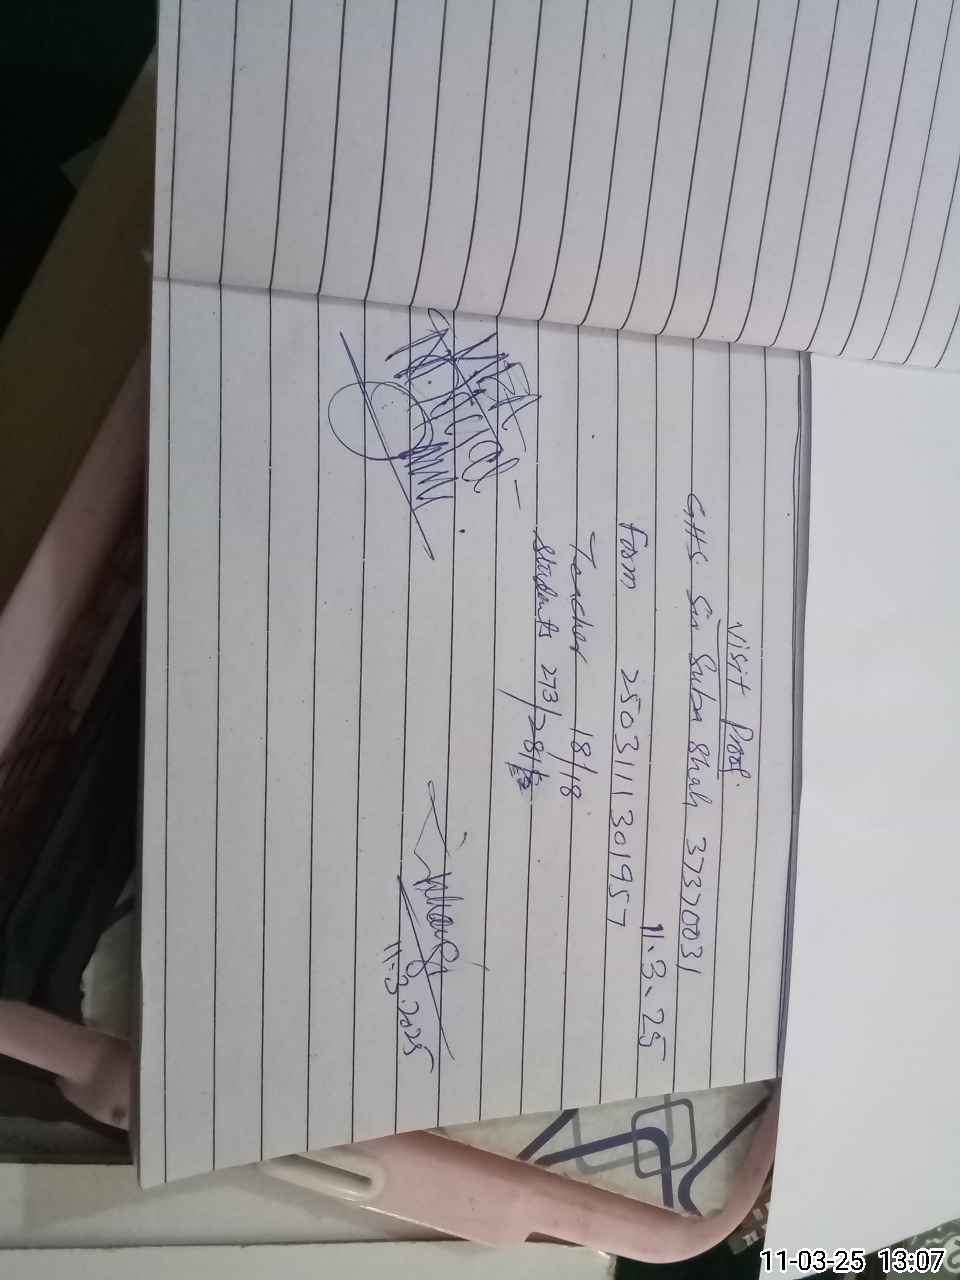 Visit Proof.
GHS. Sir Suba Shah 37370031
11.3.25
Form 2503111301957
Teacher 18/18
Students 273/281
MEA
11-3-2025
11-03-25 13:07